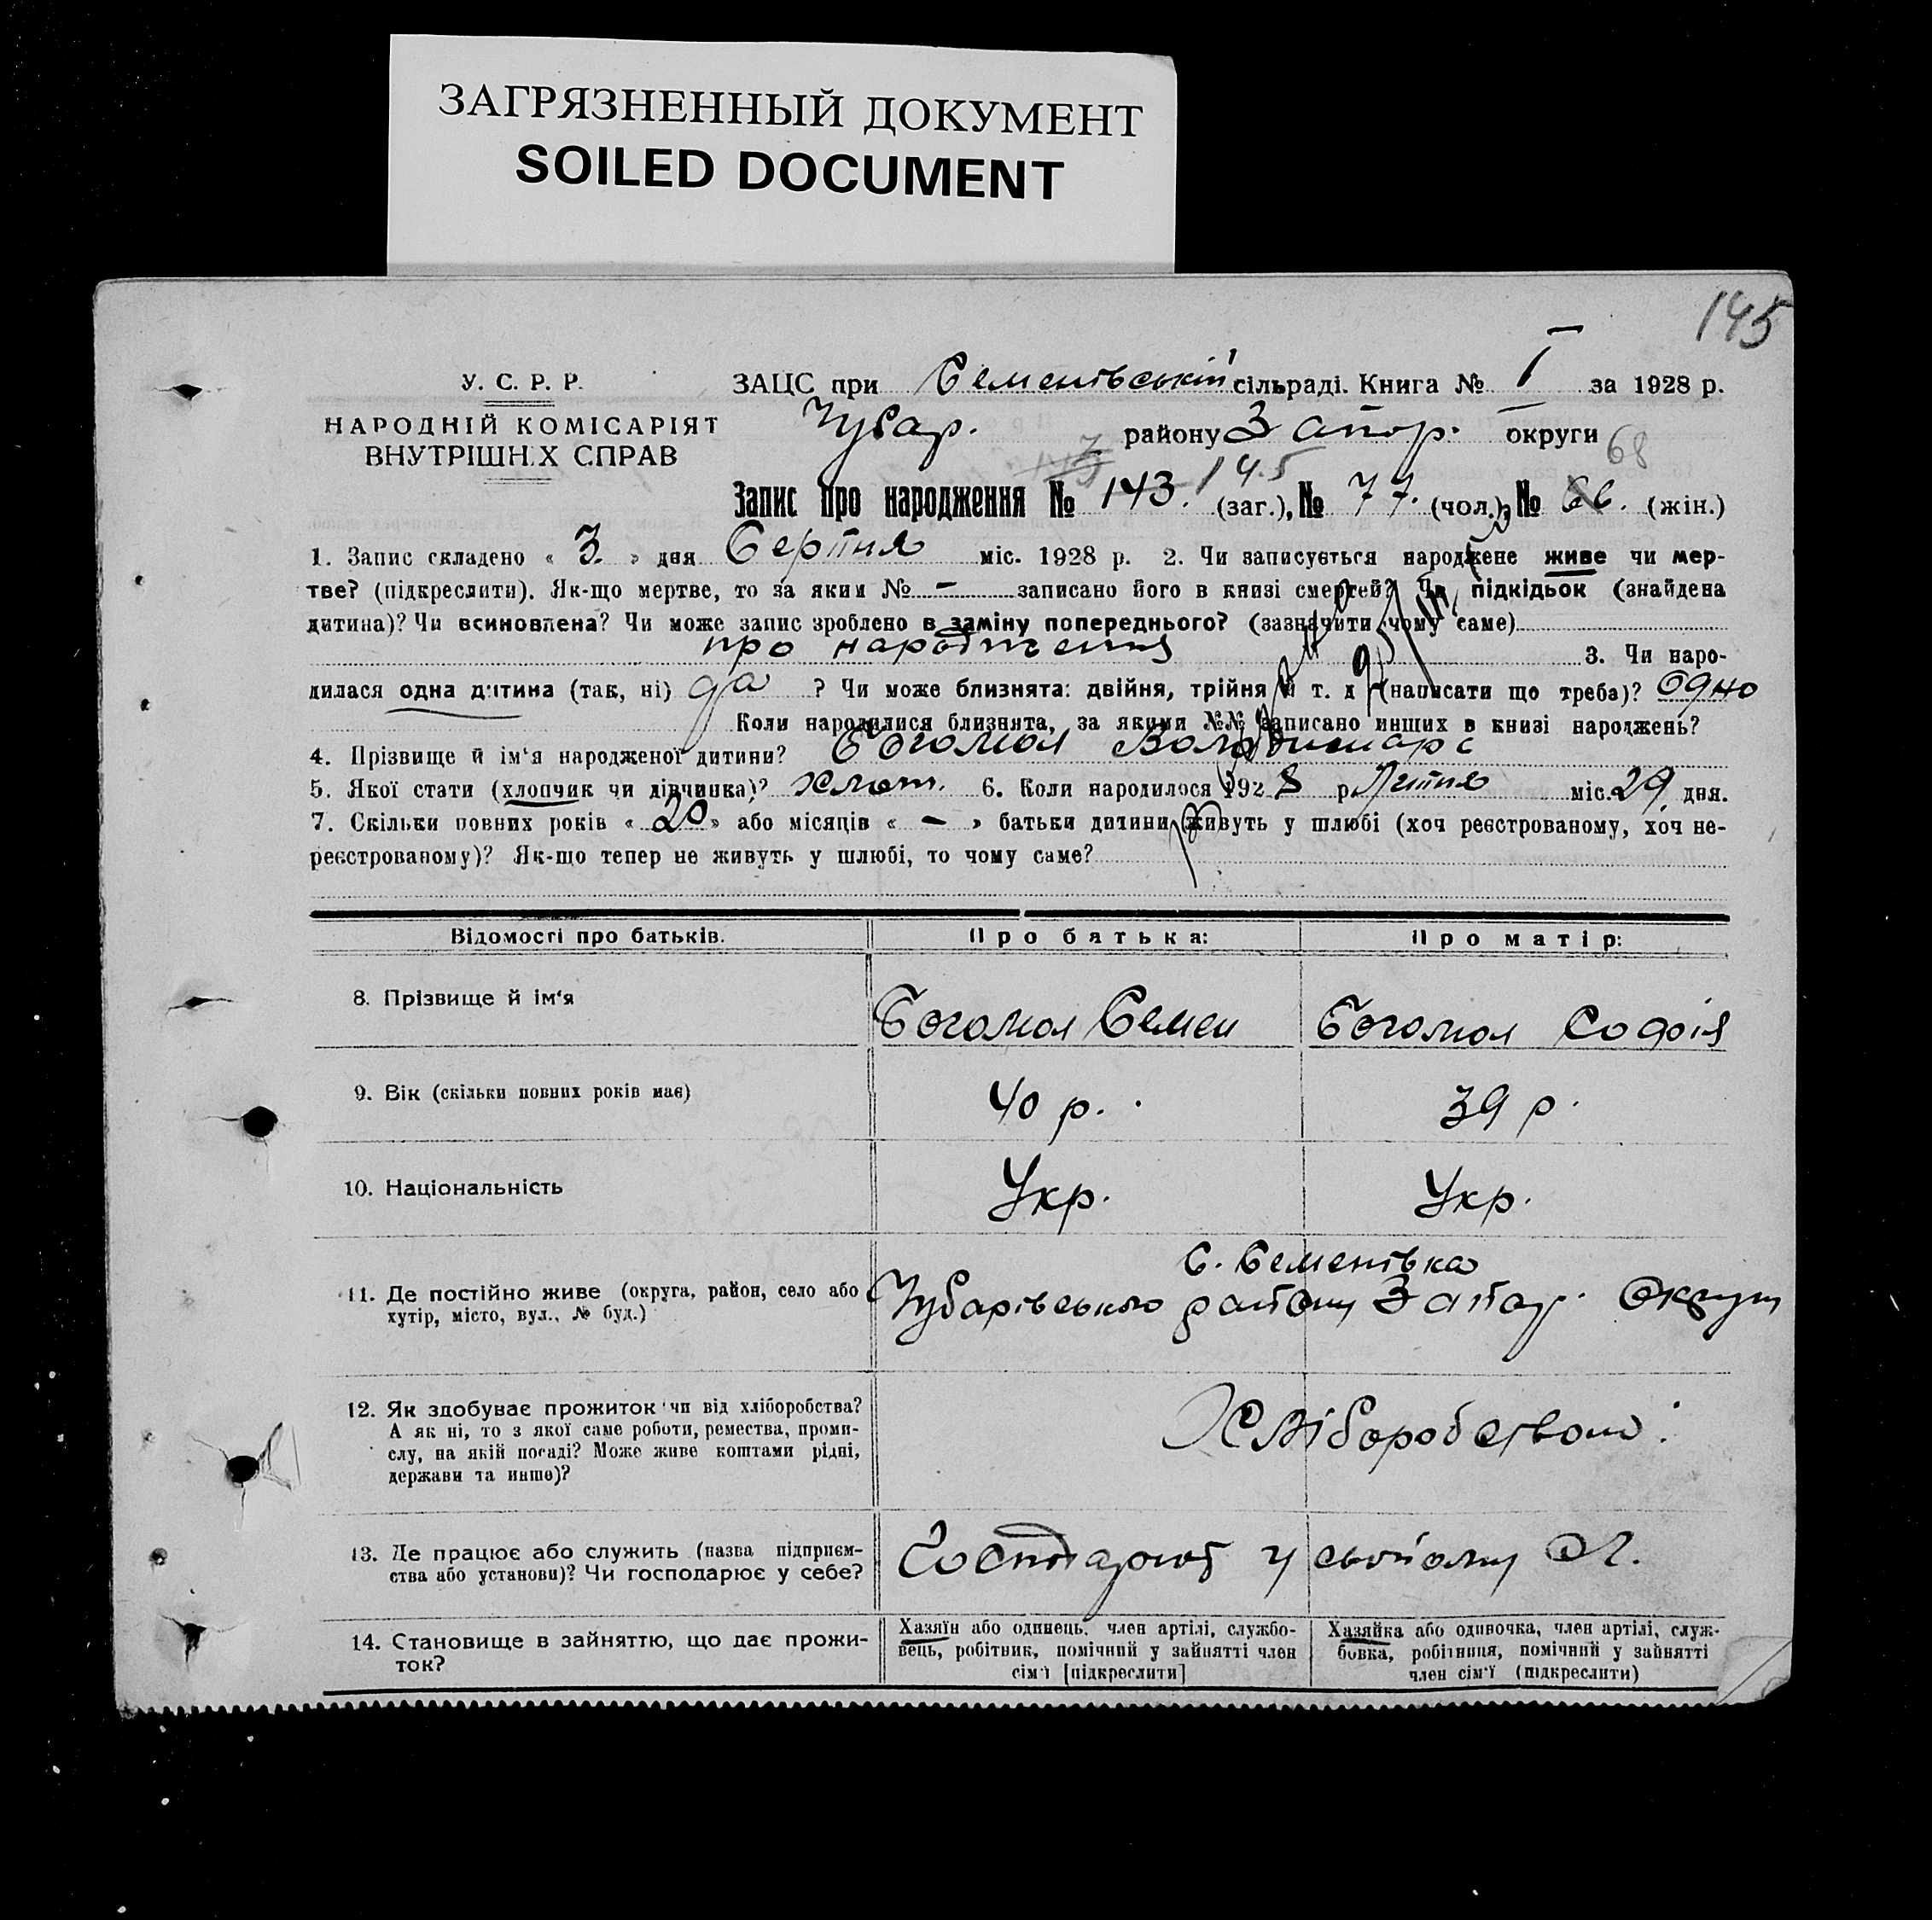 ЗАГРЯЗНЕННЫЙ ДОКУМЕНТ
SOILED DOCUMENT
145
У. С. Р. Р.
НАРОДНІЙ КОМІСАРІЯТ
ВНУТРІШН.Х СПРАВ
ЗАЦС при Семенівській сільраді. Книга № I за 1928 р.
Чубар. району Запор. округи
68
Запис про народження № 143. 145 (заг.), № 77. (чол.), № 66. (жін.)
1. Запис складено « 3. » дня Серпня міс. 1928 р. 2. Чи записується народжене живе чи мер-
тве? (підкреслити). Як-що мертве, то за яким № — записано його в книзі смертей? Чи підкідьок (знайдена
дитина)? Чи всиновлена? Чи може запис зроблено в заміну попереднього? (зазначити чому саме)
про народження 3. Чи наро-
дилася одна дитина (так, ні) да ? Чи може близнята: двійня, трійня й т. д. (написати що треба)? Одно
Коли народилися близнята, за якими №№ записано инших в книзі народжень?
4. Прізвище й ім'я народженої дитини? Богомол Володимарь
5. Якої стати (хлопчик чи дівчинка)? хлоп. 6. Коли народилося 1928 р. Липня міс. 29. дня.
7. Скільки повних років « 20 » або місяців « — » батьки дитини живуть у шлюбі (хоч реєстрованому, хоч не-
реєстрованому)? Як-що тепер не живуть у шлюбі, то чому саме?
Відомості про батьків. Про батька: Про матір:
8. Прізвище й ім'я Богомол Семен Богомол Софія
9. Вік (скільки повних років має) 40 р. 39 р.
10. Національність Укр. Укр.
С. Семенівка
11. Де постійно живе (округа, район, село або Чубарівського району Запор. Округи
хутір, місто, вул., № буд.)
12. Як здобуває прожиток чи від хліборобства?
А як ні, то з якої саме роботи, ремества, проми- Хліборобством.
слу, на якій посаді? Може живе коштами рідні,
держави та инше)?
13. Де працює або служить (назва підприєм- Господарюют у свойому
ства або установи)? Чи господарює у себе?
14. Становище в зайняттю, що дає прожи-
ток?
Хазяїн або одинець, член артілі, службо-
вець, робітник, помічний у зайнятті член
сім'ї [підкреслити]
Хазяйка або одиночка, член артілі, служ-
бовка, робітниця, помічний у зайнятті
член сім'ї (підкреслити)